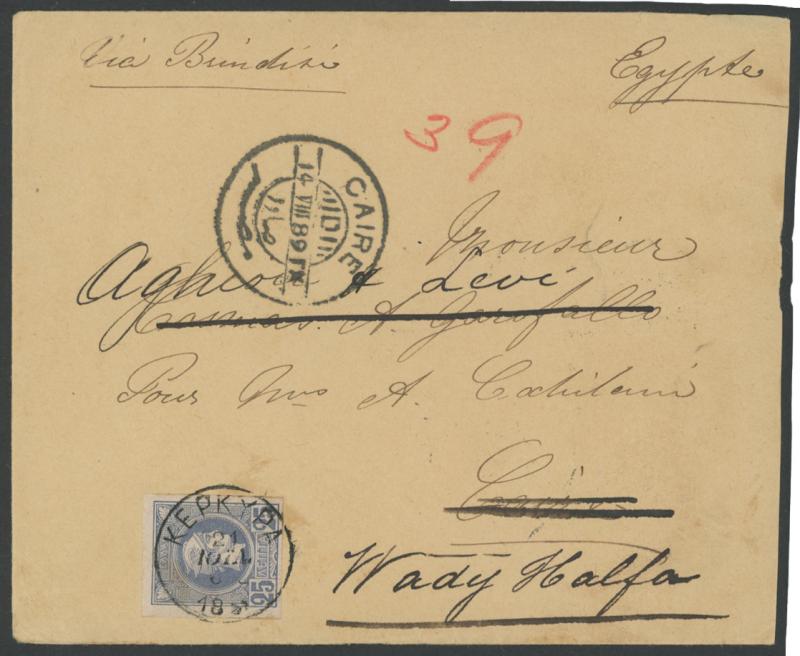 Via Brindisi
Egypte
39
CAIRE
14 VIII 89
Monsieur
Aghion & Levi
Cosmas A. Garofallo
Pour Mrs A.
Caire
Wady Halfa
ΚΕΡΚΥΡΑ
21
ΙΟΥΛ
18
25 25